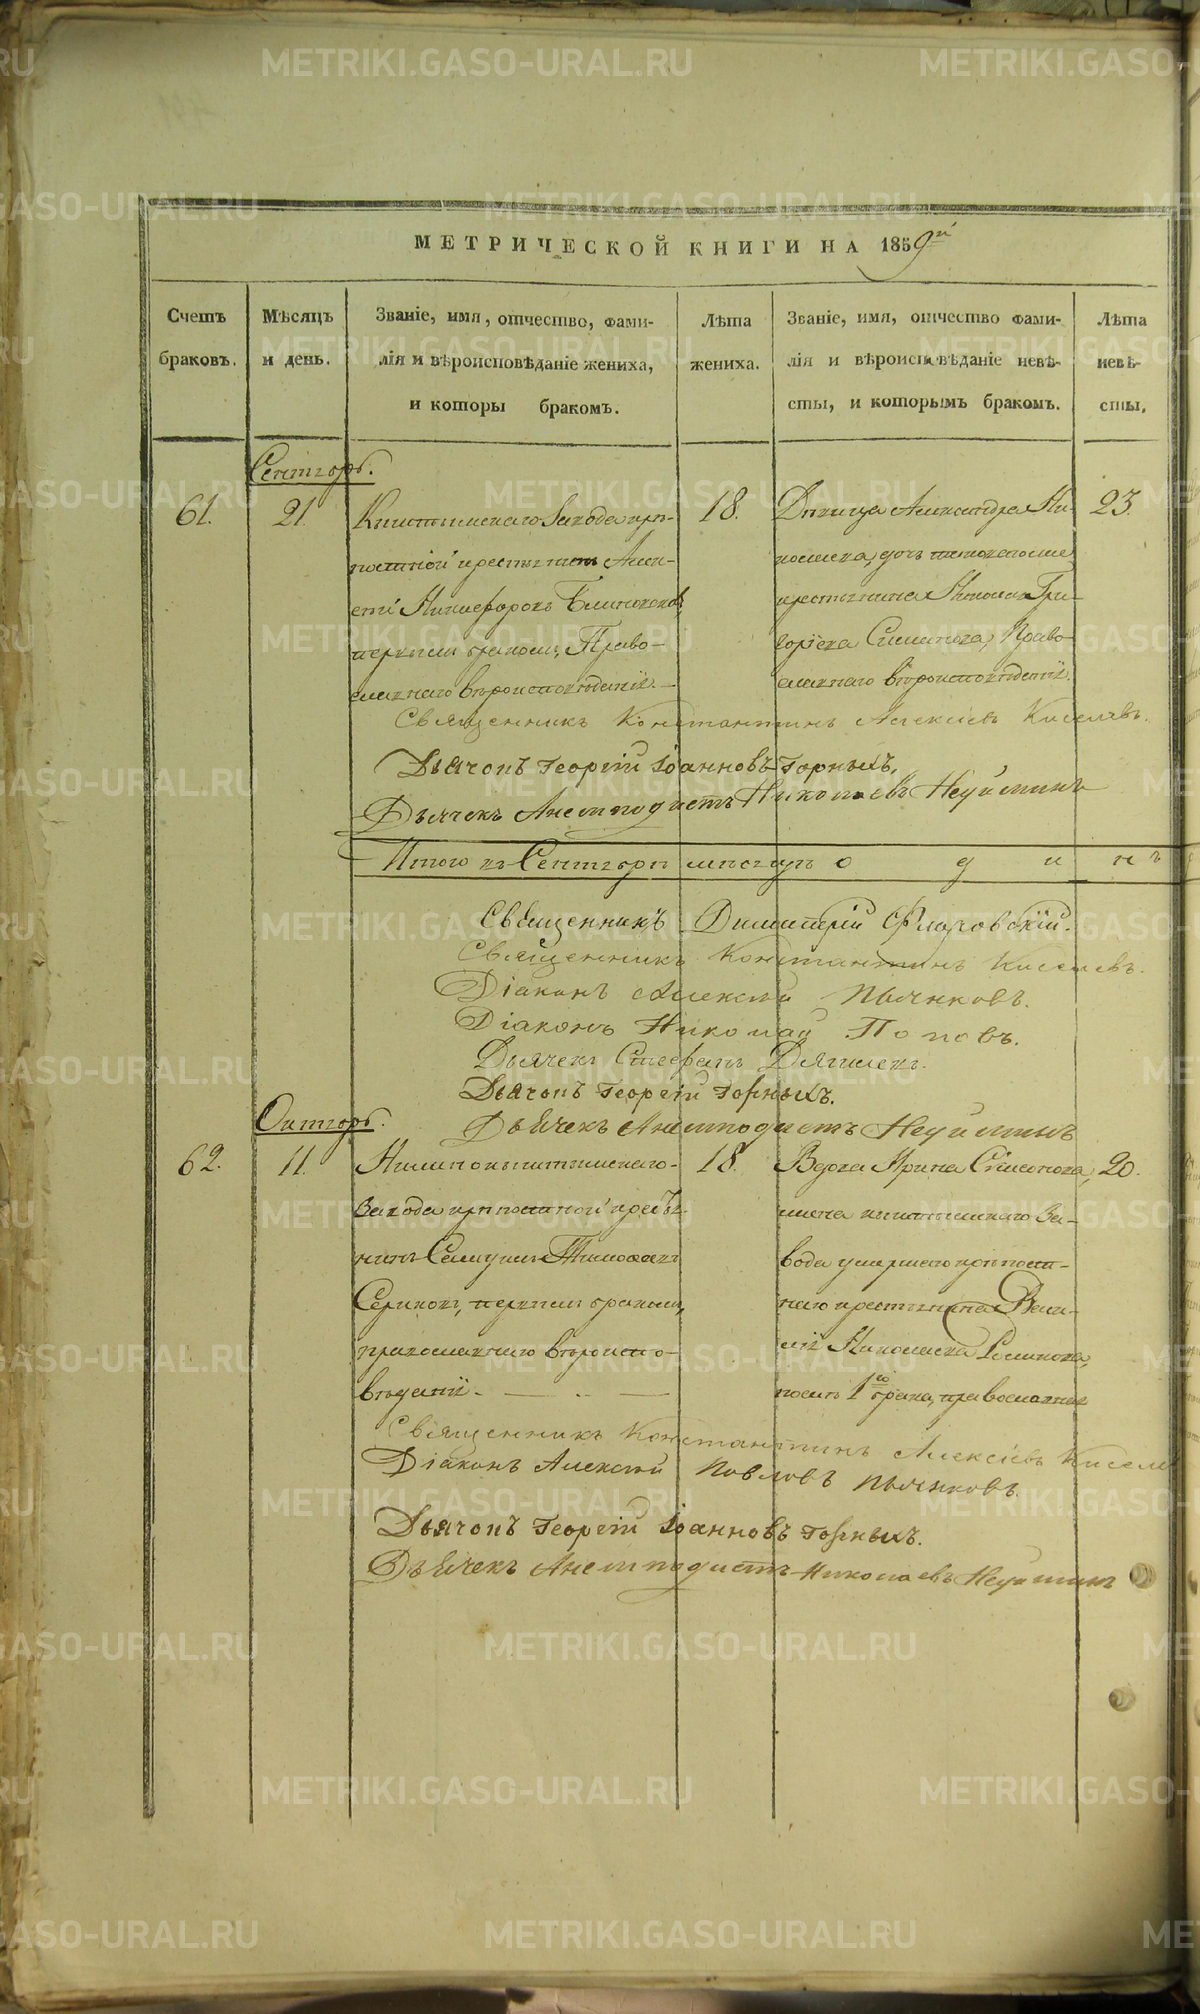 МЕТРИЧЕСКОЙ КНИГИ НА 1859й
Счетъ браковъ.
Мѣсяцъ и день.
Званіе, имя, отчество, фами-
лія и вѣроисповѣданіе жениха,
и которы бракомъ.
Лѣта жениха.
Званіе, имя, отчество фами-
лія и вѣроисповѣданіе невѣ-
сты, и которымъ бракомъ.
Лѣта невѣ-
сты.
Сентябрь.
61.
21.
Кыштымскаго Завода крѣ-
постной крестьянинъ Алек-
сѣй Никифоровъ
первымъ бракомъ, Право-
славнаго вѣроисповѣданія.
18.
Дѣвица Александра Ни-
колаева, дочь
крестьянина Николая Гри-
горьева Православнаго
вѣроисповѣданія.
23.
Священникъ Константинъ Алексіевъ Киселевъ.
Дьячокъ Георгій Іоанновъ Горныхъ.
Дьячекъ Анемподистъ Николаевъ Неуйминъ
Итого въ Сентябрѣ мѣсяцѣ одинъ
Священникъ Димитрій Флоровскій.
Священникъ Константинъ Киселевъ.
Діаконъ Алексѣй
Діаконъ Николай Поповъ.
Дьячекъ Стефанъ
Дьячокъ Георгій Горныхъ.
Дьячекъ Анемподистъ Неуйминъ
Октябрь.
62.
11.
Нижнекыштымскаго
Завода крѣпостной крестья-
нинъ Самуилъ Тимофеевъ
первымъ бракомъ,
православнаго вѣроиспо-
вѣданія.
18.
Вдова Ирина Симонова,
жена кыштымскаго За-
вода умершаго крѣпост-
наго крестьянина Васи-
лія Николаева
послѣ 1го брака, православная
20.
Священникъ Константинъ Алексіевъ Кисел
Діаконъ Алексѣй Павловъ
Дьячокъ Георгій Іоанновъ Горныхъ.
Дьячекъ Анемподистъ Николаевъ Неуйминъ
METRIKI.GASO-URAL.RU